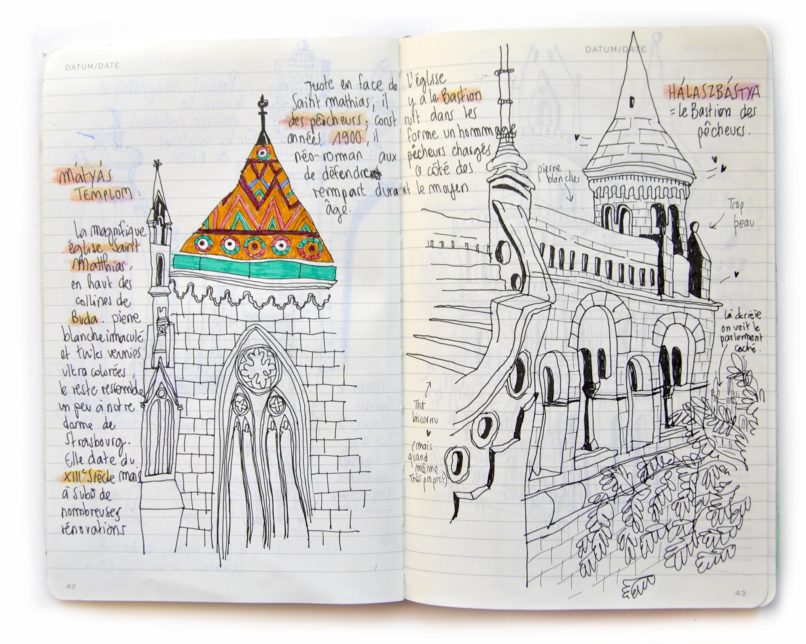 DATUM/DATE
Juste en face de l'église
Saint Mathias, il y a le Bastion
des pêcheurs, construit dans les
années 1900, il forme un hommage
néo-roman aux pêcheurs chargés
de défendre ce côté des
rempart durant le moyen
âge.
Matyás
Templom :
La magnifique
église Saint
Matthias,
en haut des
collines de
Buda. pierre
blanche immaculé
et tuiles vernies
ultra colorées
le reste ressemble
un peu à notre
dame de
Strasbourg.
Elle date du
XIIIe Siècle mais
à subi de
nombreuses
rénovations
42
DATUM/DATE
HÁLASZBÁSTYA
= le Bastion des
pêcheurs.
pierre
blanches
Trop
beau
là derrière
on voit le
parlement
caché.
Toit
biscornu
(mais
quand
même
très propre)
43